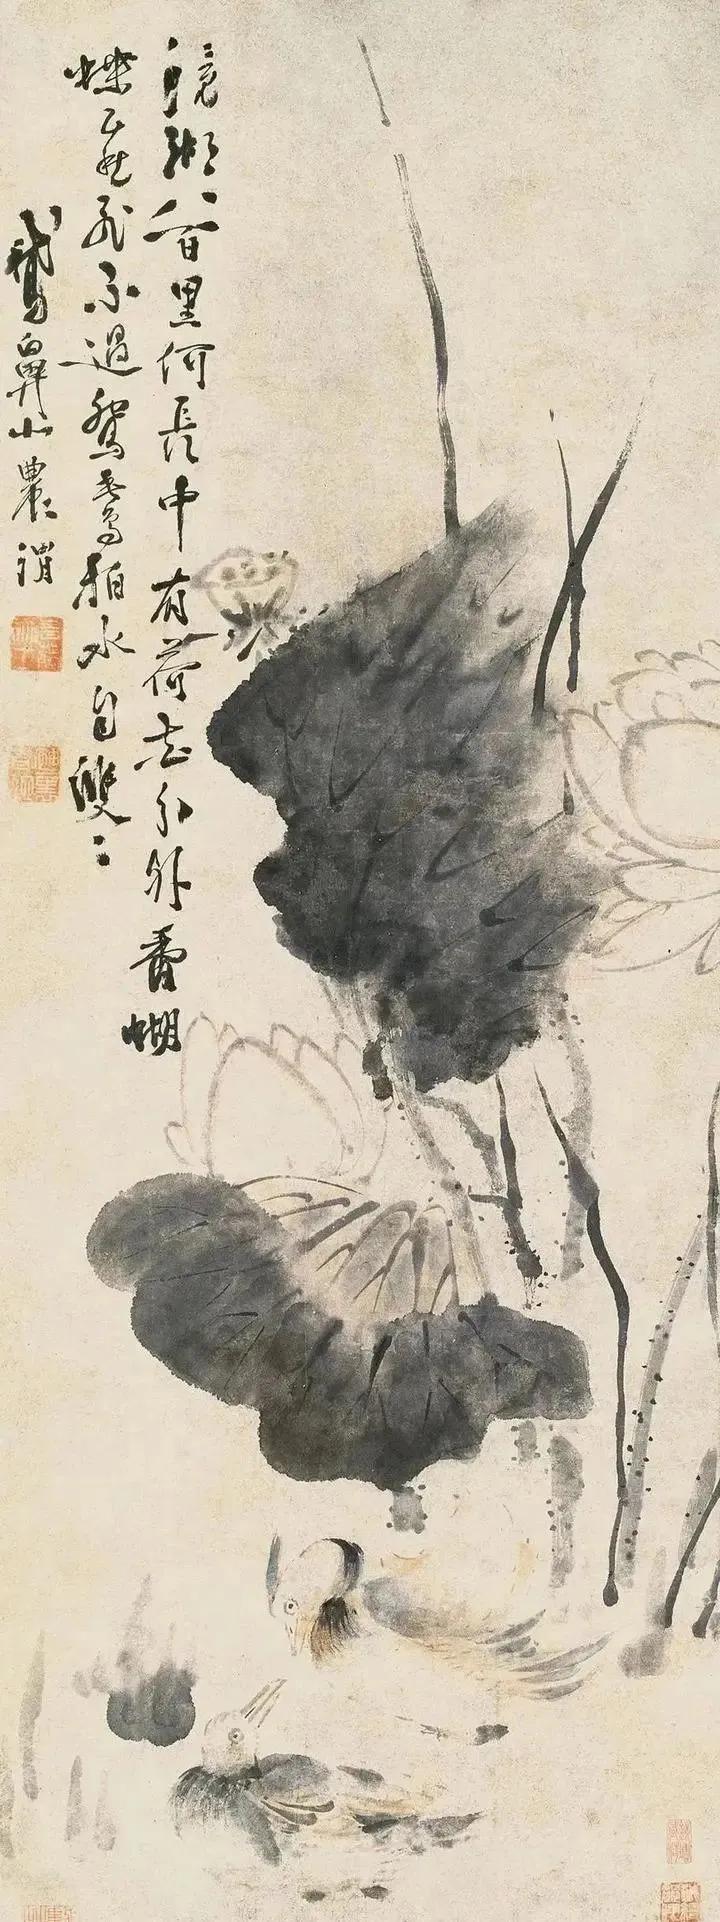 鏡湖八百里何長中有荷花分外香蝴
蝶正愁飛不過鴛鴦拍水自雙〻
鵝鼻小農渭